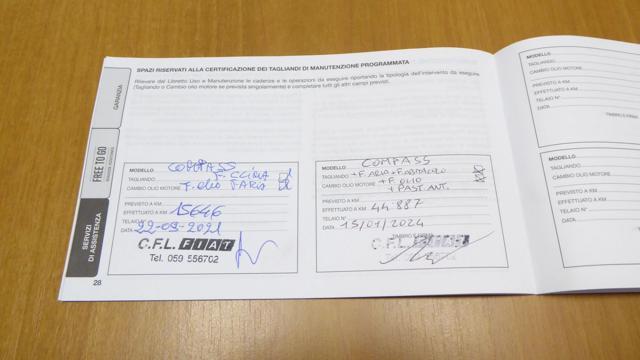 SPAZI RISERVATI ALLA CERTIFICAZIONE DEI TAGLIANDI DI MANUTENZIONE PROGRAMMATA
Rilevare dal Libretto Uso e Manutenzione le cadenze e le operazioni da eseguire riportando la tipologia dell'intervento da eseguire
(Tagliando o Cambio olio motore se prevista singolarmente) e completare tutti gli altri campi previsti.
GARANZIA
FREE TO GO
SERVIZI
DI ASSISTENZA
MODELLO COMPASS
TAGLIANDO F. CLIMA
CAMBIO OLIO MOTORE F. OLIO F. ARIA
PREVISTO A KM
EFFETTUATO A KM 15646
TELAIO N°
DATA 22-09-2021
C.F.L. FIAT
Tel. 059 556702
28
MODELLO COMPASS
TAGLIANDO + F. ARIA +
CAMBIO OLIO MOTORE + F. OLIO
+ PAST. ANT.
PREVISTO A KM
EFFETTUATO A KM 44.887
TELAIO N°
DATA 15/01/2024
TIMBRO E FIRMA
C.F.L. FIAT
MODELLO
TAGLIANDO
CAMBIO OLIO MOTORE
PREVISTO A KM
EFFETTUATO A KM
TELAIO N°
DATA
TIMBRO E FIRMA
MODELLO
TAGLIANDO
CAMBIO OLIO MOTORE
PREVISTO A KM
EFFETTUATO A KM
TELAIO N°
DATA